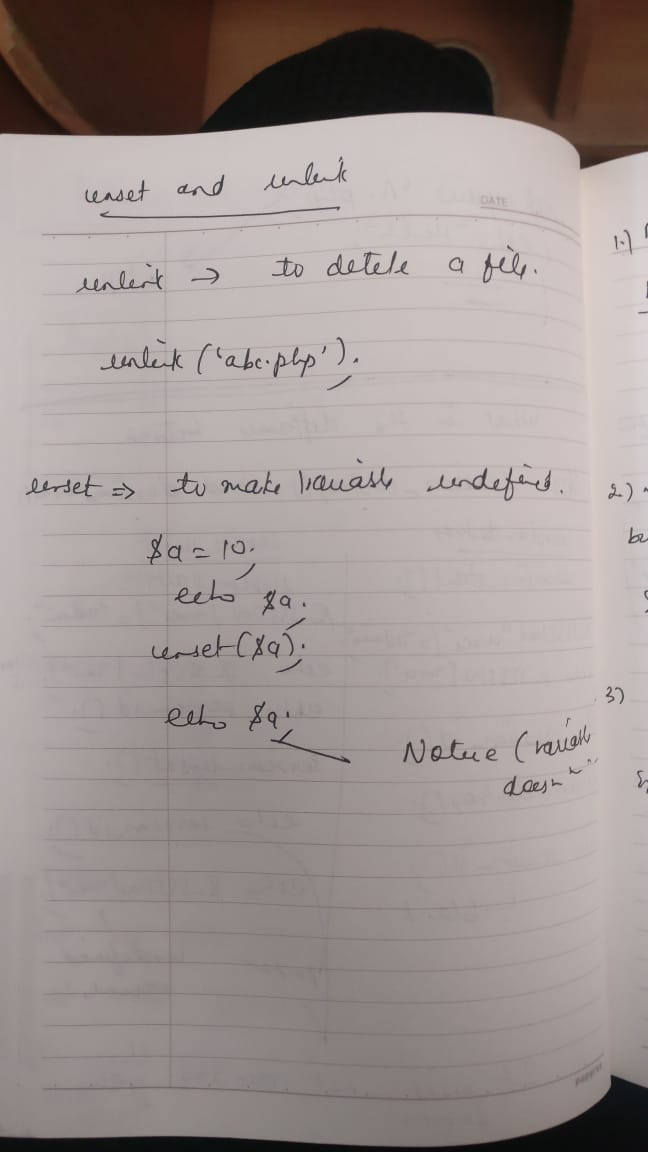 unset and unlink
DATE
unlink → to detele a file.
unlink ('abc.php');
unset ⇒ to make variable undefined.
$a = 10;
echo $a;
unset($a);
echo $a;
Notice (variable
doesn
1.)
2.)
be
3)